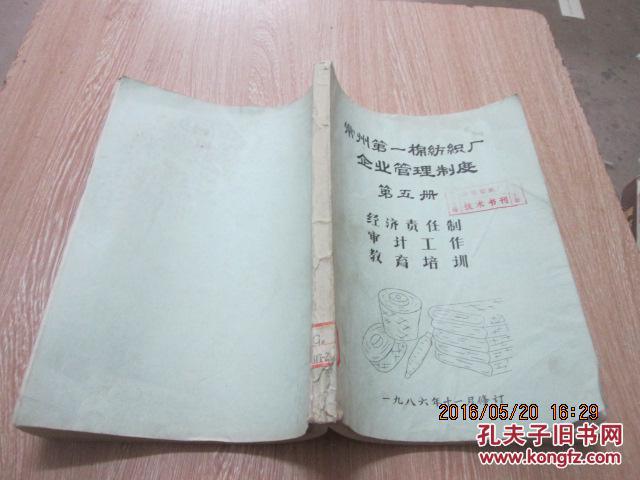 常州第一棉纺织厂
企业管理制度
第五册
技术书刊
经济责任制
审计工作
教育培训
一九八六年十一月修订
2016/05/20 16:29
孔夫子旧书网
www.kongfz.com